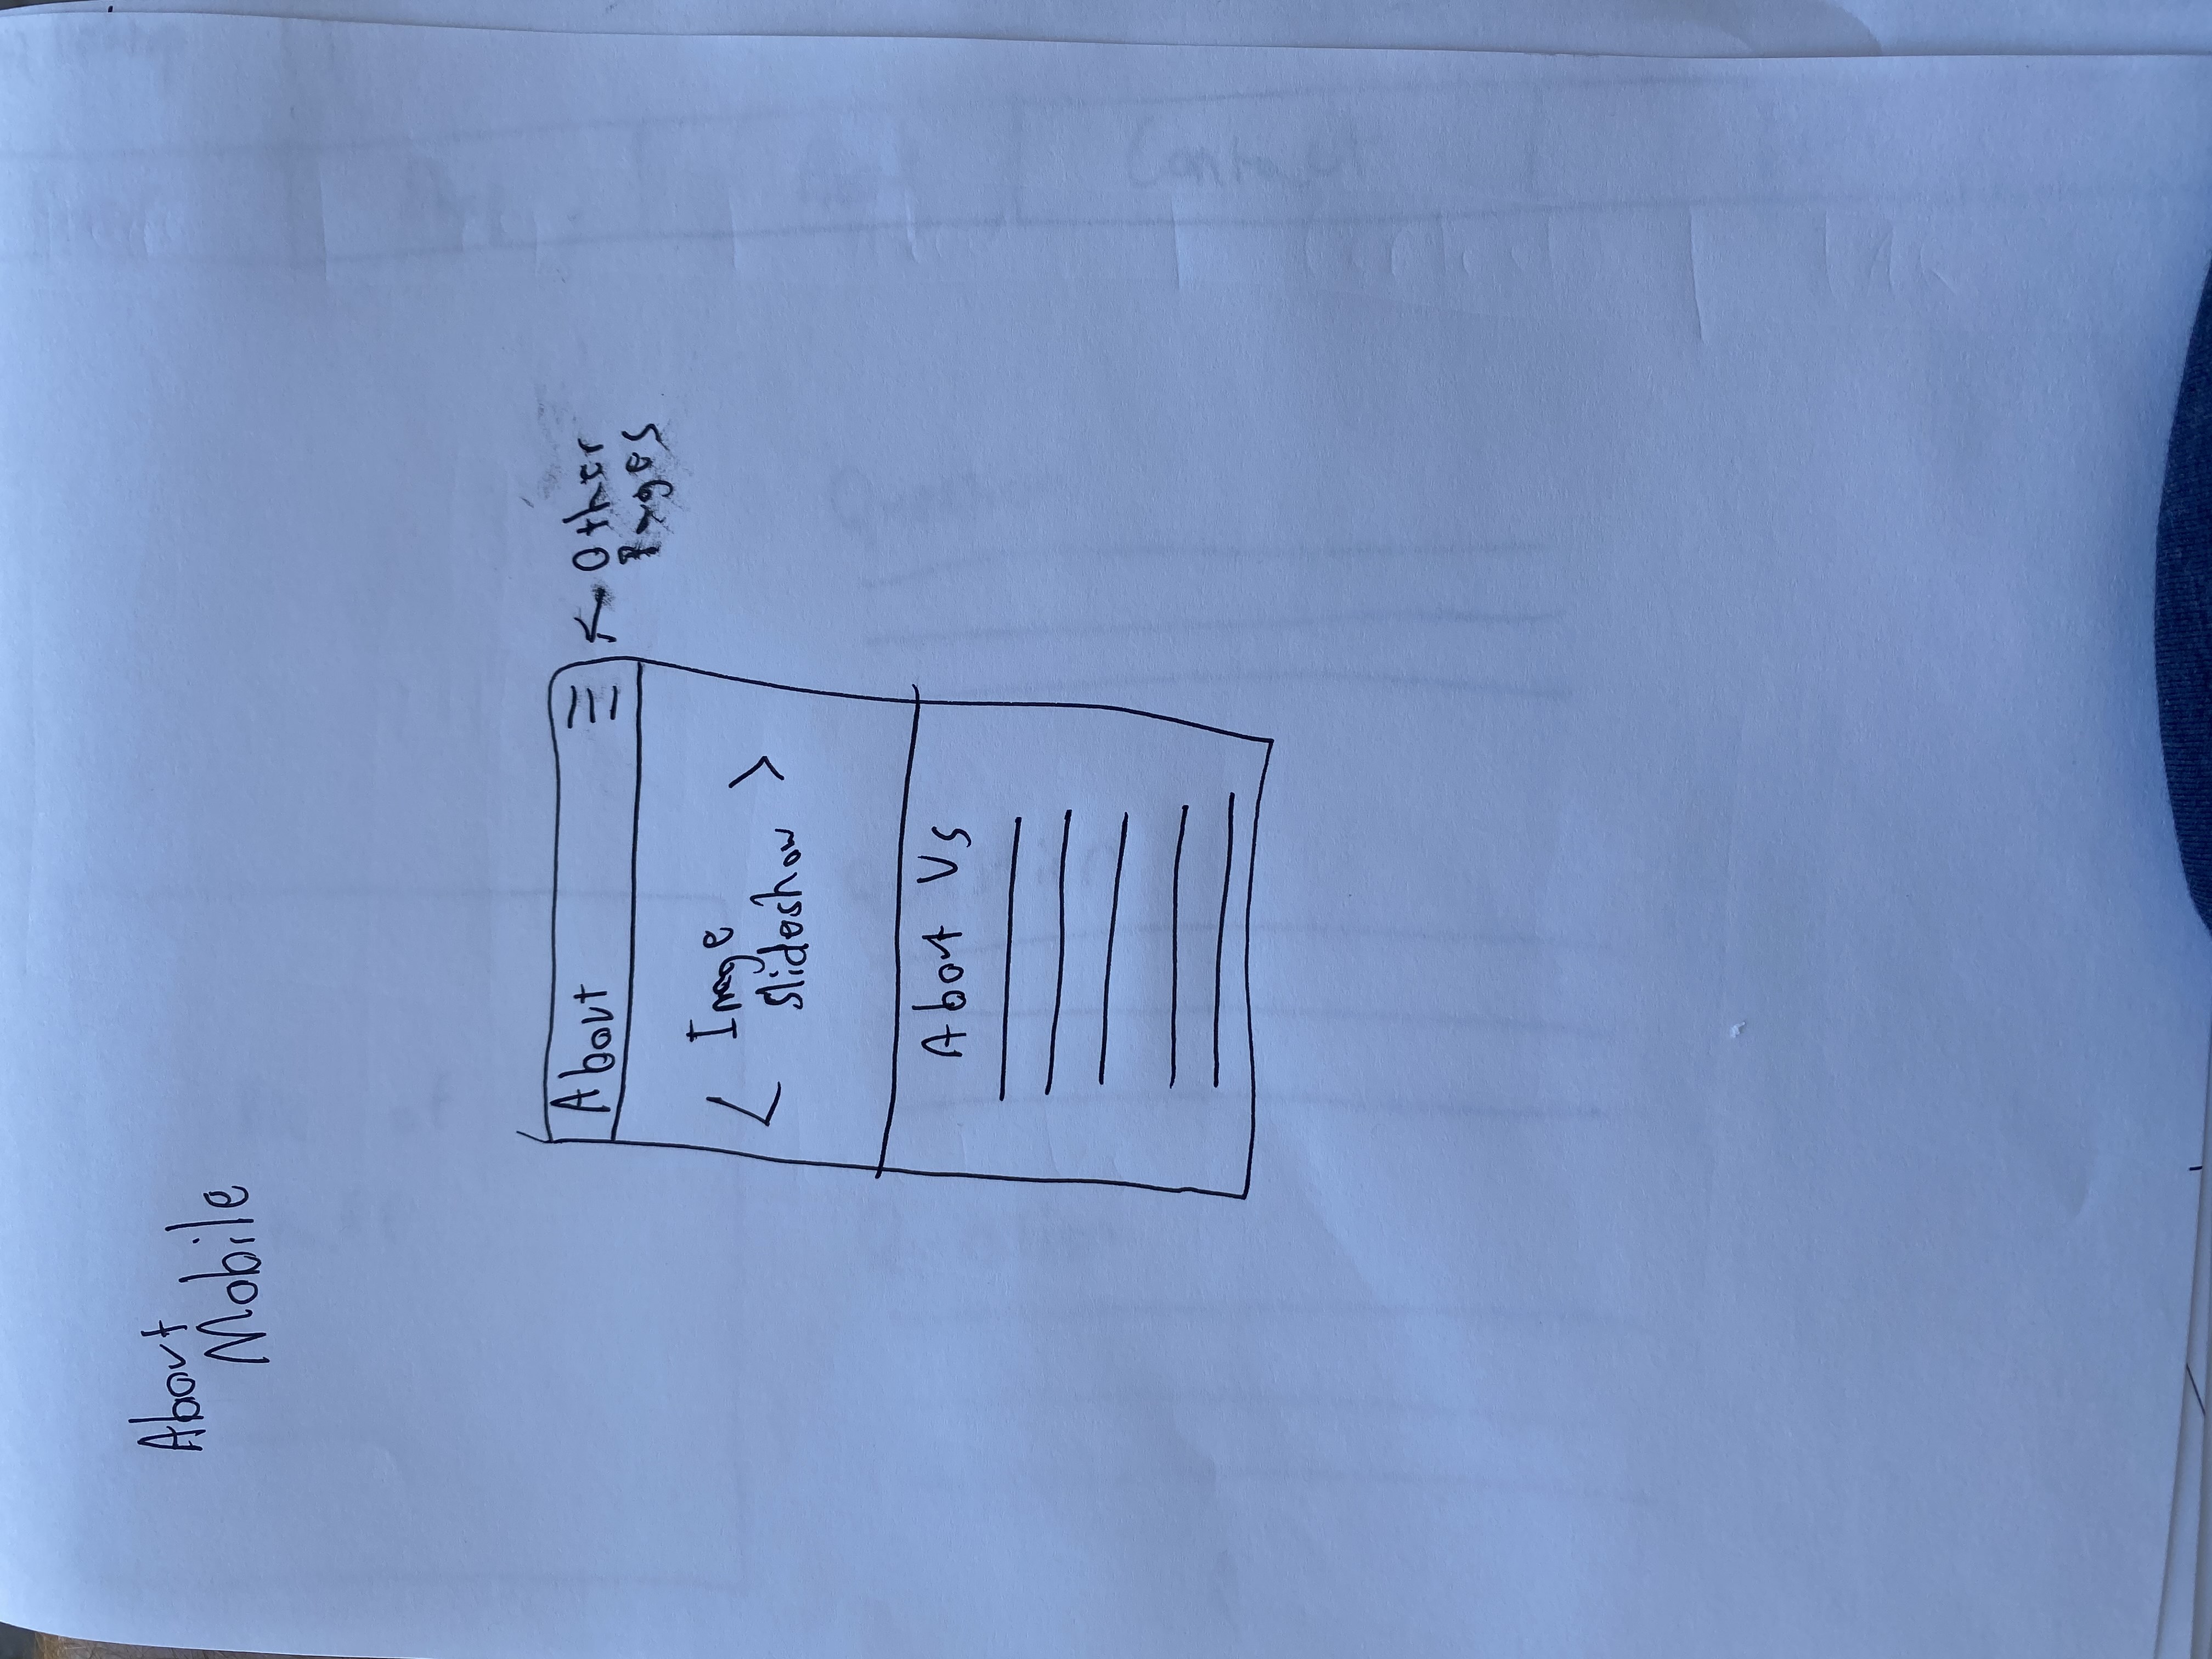 About
Mobile
About
Other
Pages
Image
slideshow
About Us